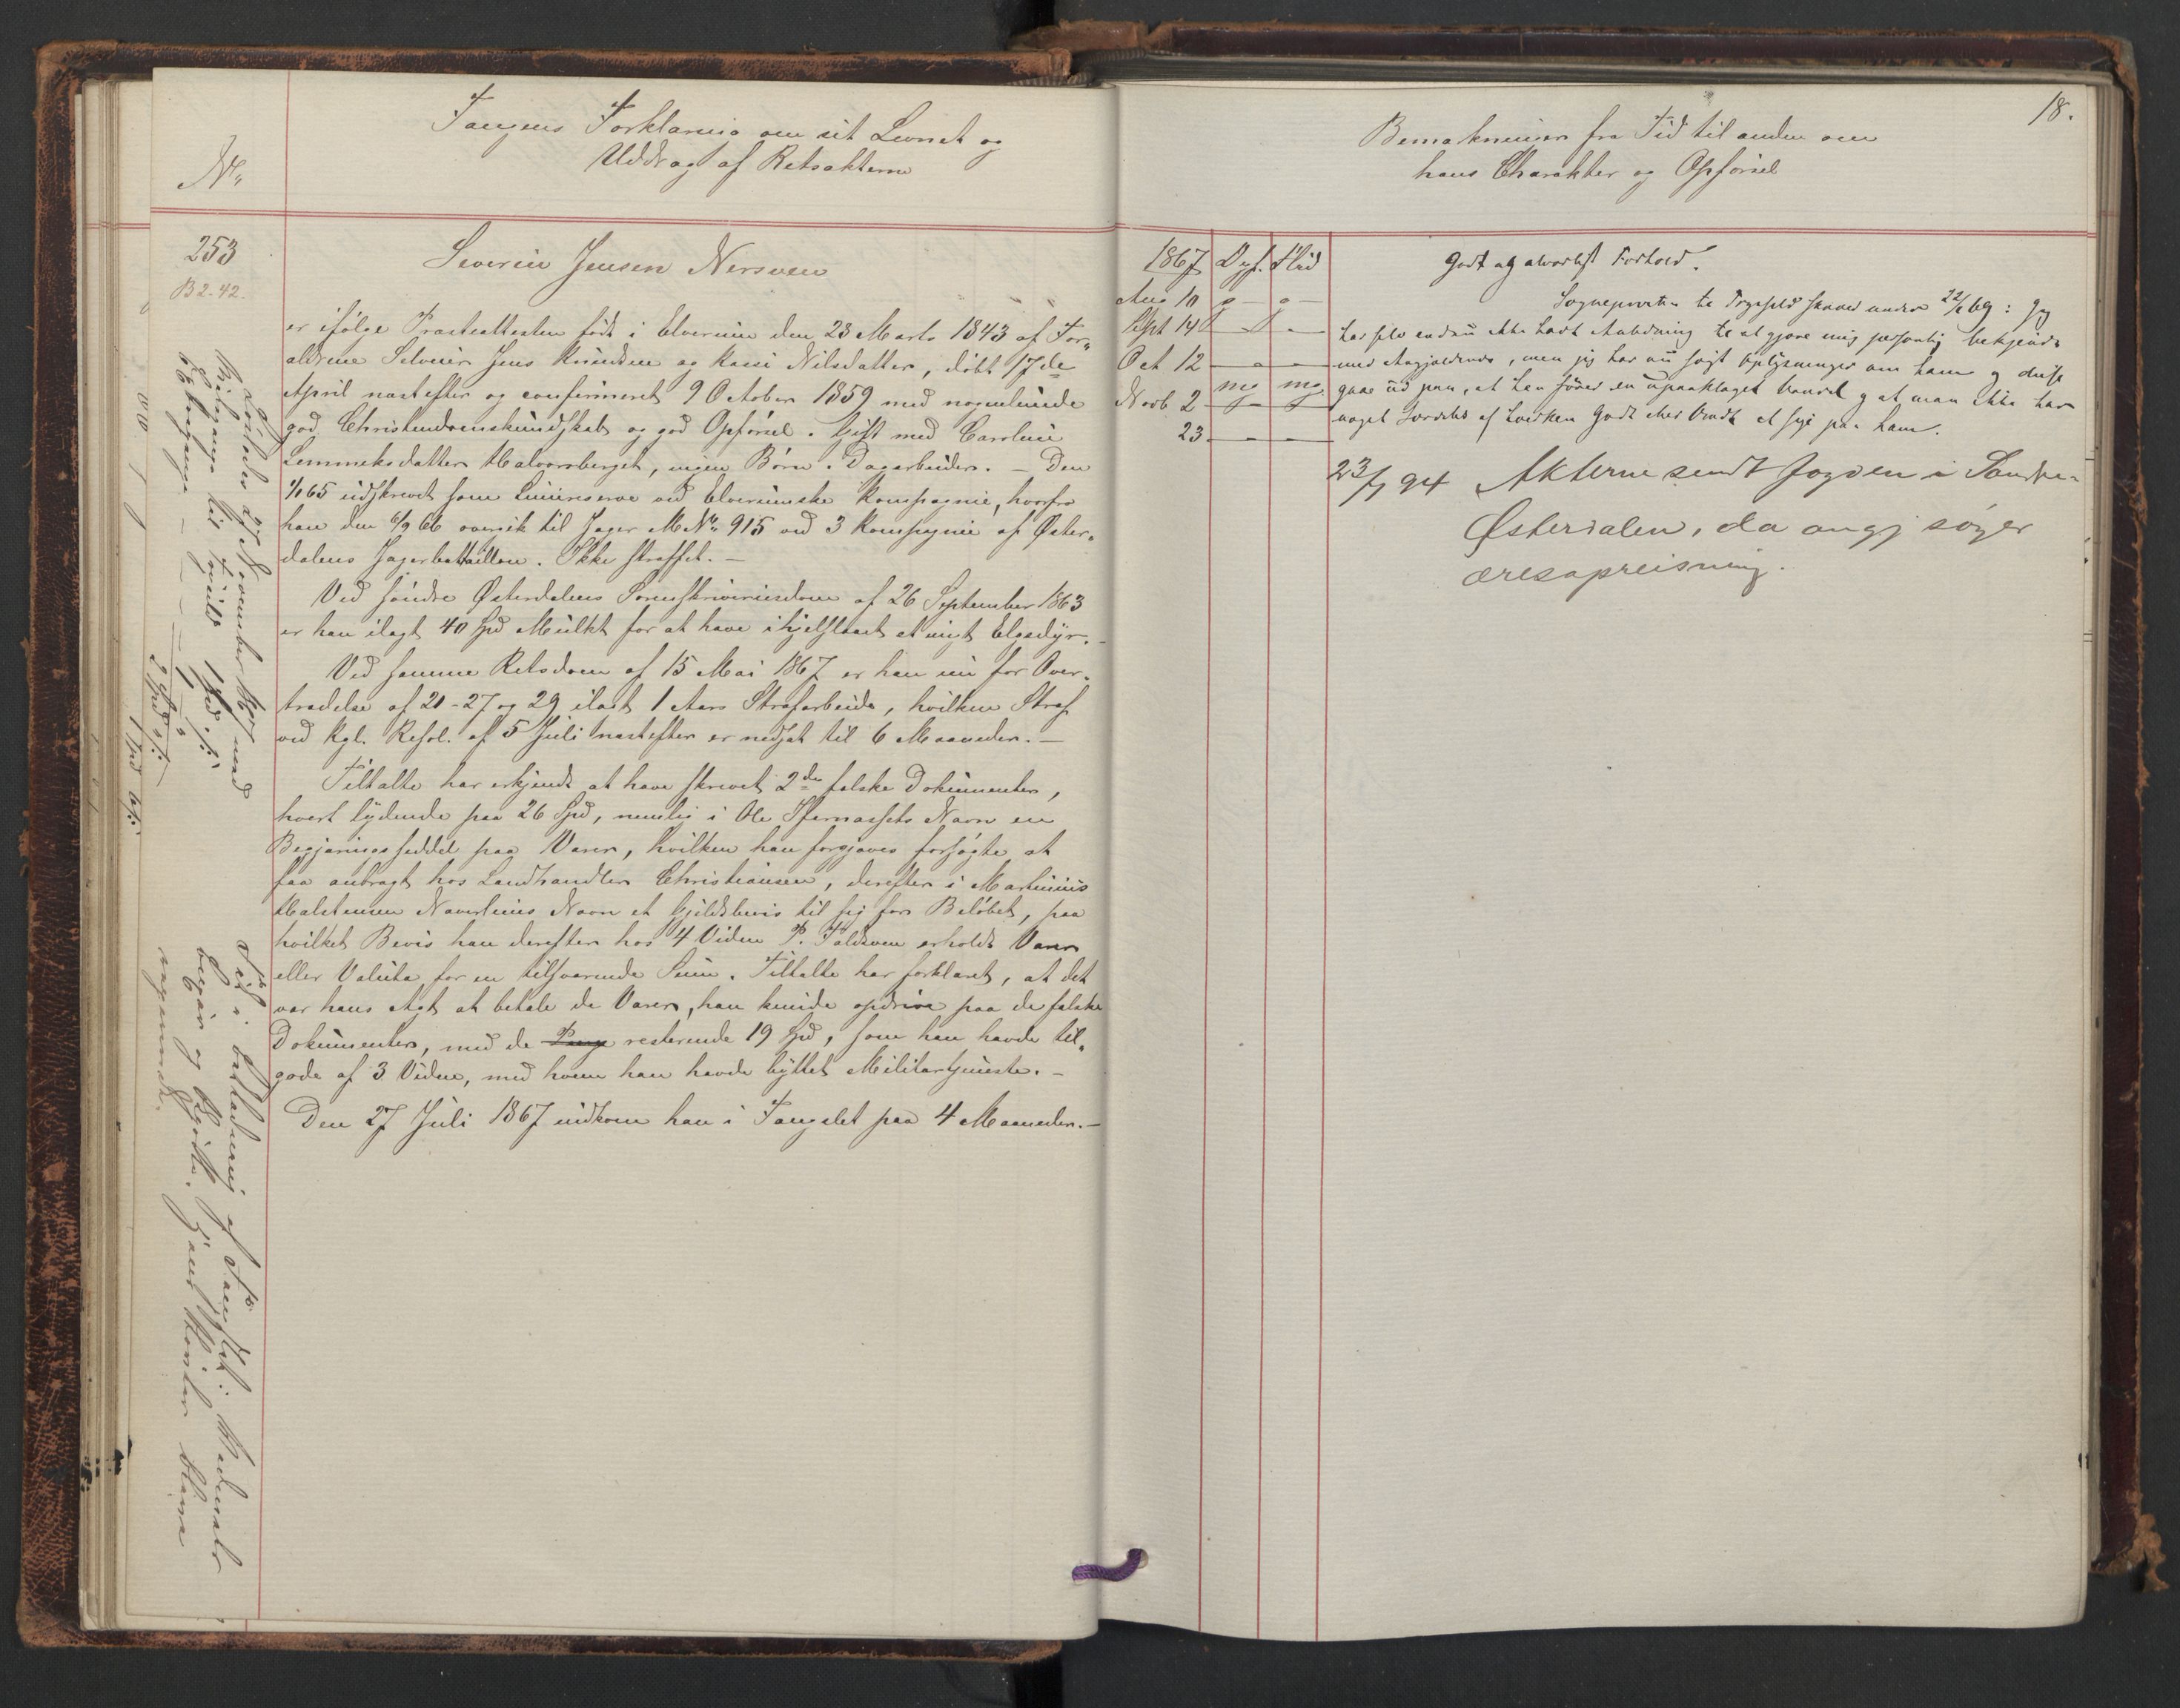 Fangens Forklaring om sit Levnet og
Uddrag af Retsakterne
No
253
B 2. 42.
Severin Jensen Nersveen
er ifølge Præsteattesten født i Elverum den 23 Marts 1843 af For„
ældrene Selveier Jens Knudsen og Kari Nilsdatter, døbt 17de
April næstefter og confirmeret 9 October 1859 med nogenlunde
god Christendomskundskab og god Opførsel. Gift med Caroline
Lemmeksdatter Halvorsberget, ingen Børn. Dagarbeider. – Den
1/1 65 udskrevet som Linieroserve ved Elverumske Kompagnie, hvorfra
han den 6/9 66 overgik til Jæger M No 915 ved 3 Kompagnie af Øster„
dalens Jægerbattaillon. Ikke straffet. –
Ved søndre Østerdalens Sorenskriveriesdom af 26 September 1863
er han ilagt 40 Spd Mulkt for at have ihjelslaaet et ungt Elgsdyr. –
Ved samme Retsdom af 15 Mai 1867 er han nu for Over„
trædelse af 21-27 og 29 ilagt 1 Aars Strafarbeide, hvilken Straf
ved Kgl. Resol. af 5 Juli næstefter er nedsat til 6 Maaneder. –
Tiltalte har erkjendt at have skrevet 2de falske Dokumenter,
hvert lydende paa 26 Spd, nemlig i Ole Navn en
Begjæringsseddel paa Varer, hvilken han forgjæves forsøgte at
faa anbragt hos Landhandler Christiansen, derefter i Martinius
Halstensen Navn et Gjeldsbevis til sig for Beløbet, paa
hvilket Bevis han derefter hos 4 Vidne P. erholdt Varer
eller Valuta for en tilsvarende Sum. Tiltalte har forklaret, at det
var hans Agt at betale de Varer, han kunde opdrive paa de falske
Dokumenter, med de Penge resterende 19 Spd, som han havde til„
gode af 3 Vidne, med hvem han havde byttet Militærtjeneste. –
Den 27 Juli 1867 indkom han i Fængslet paa 4 Maaneder. –
Løsladt 27 November 1867 med
Reisepenge til 1 Spd.
18.
Bemærkninger fra Tid til anden om
hans Charakter og Opførsel
1867 Opf. Flid
Aug 10 g – g –
Sept 14 – –
Oct 12 – –
Novb 2 mg mg
23 – –
Godt og alvorligt Forhold.
Sognepresten til Trysild skriver under 22/2 69: Jeg
har selv endnu ikke havt Anledning til at gjøre mig personlig bekjendt
med Angjældende, men jeg har nu søgt Oplysninger om ham og disse
gaae ud paa, at han fører en upaaklaget Vandel og at man ikke har
noget Særdeles af hverken Godt eller Ondt at sige paa ham.
23/7 94 Akterne sendt fogden i Søndre
Østerdalen, da angj søger
æresopreisning.